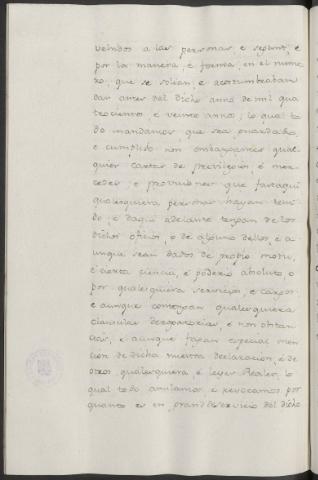 veludos a las personas e segund, e
por la manera, e forma, en el nume
ro, que se solian, e acostumbraban
dar antes del dicho anno de mil qua
trocientos, e veinte annos, lo qual to
do mandamos que sea guardado,
e cumplido non embargantes qual
quier cartas de previlegios, e mer
cedes, e provisiones que fastaqui
qualesquiera personas hayan teni
do, e daqui adelante tengan de los
dichos oficios, o de alguno dellos, e a
unque sean dados de propio motu,
e cierta ciencia, e poderio absoluto, o
por qualesquiera servicios, e cargos
e aunque contengan qualesquiera
clausulas derogatorias, e non obstan
cias, e aunque fagan especial men
cion de dicha nuestra declaracion, e de
otros qualesquiera, e leyes Reales, lo
qual todo anulamos, e revocamos por
quanto es en grand deservicio del dicho